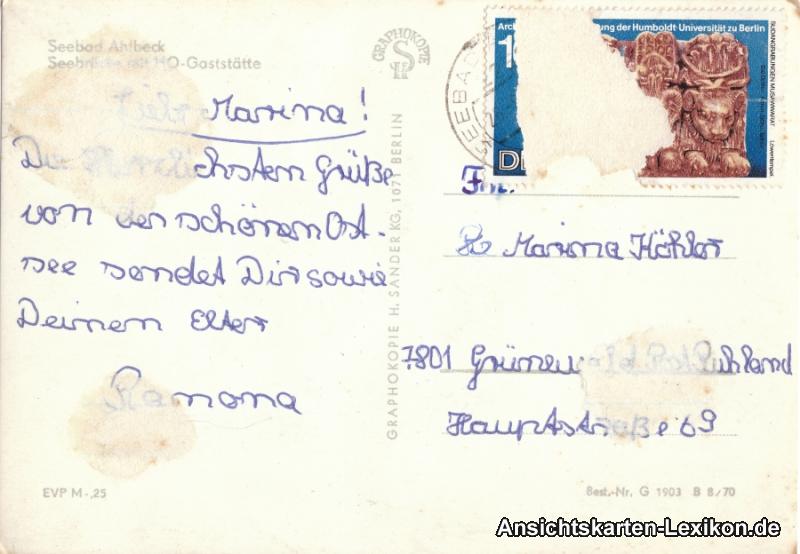 Seebad Ahlbeck
Seebrücke mit HO-Gaststätte
Liebe Marina!
Die Herzlichsten Grüße
von der schönen Ost-
see sendet Dir sowie
Deinen Eltern
Ramona
EVP M -,25
GRAPHOKOPIE
GRAPHOKOPIE H. SANDER KG, 1071 BERLIN
SEEBAD
ung der Humboldt-Universität zu Berlin
SUDANGRABUNGEN MUSAWWARAT
Löwentempel
Marina Köhler
7801 Grünewald Post Ruhland
Hauptstraße 69
Best.-Nr. G 1903 B 8/70
Ansichtskarten-Lexikon.de